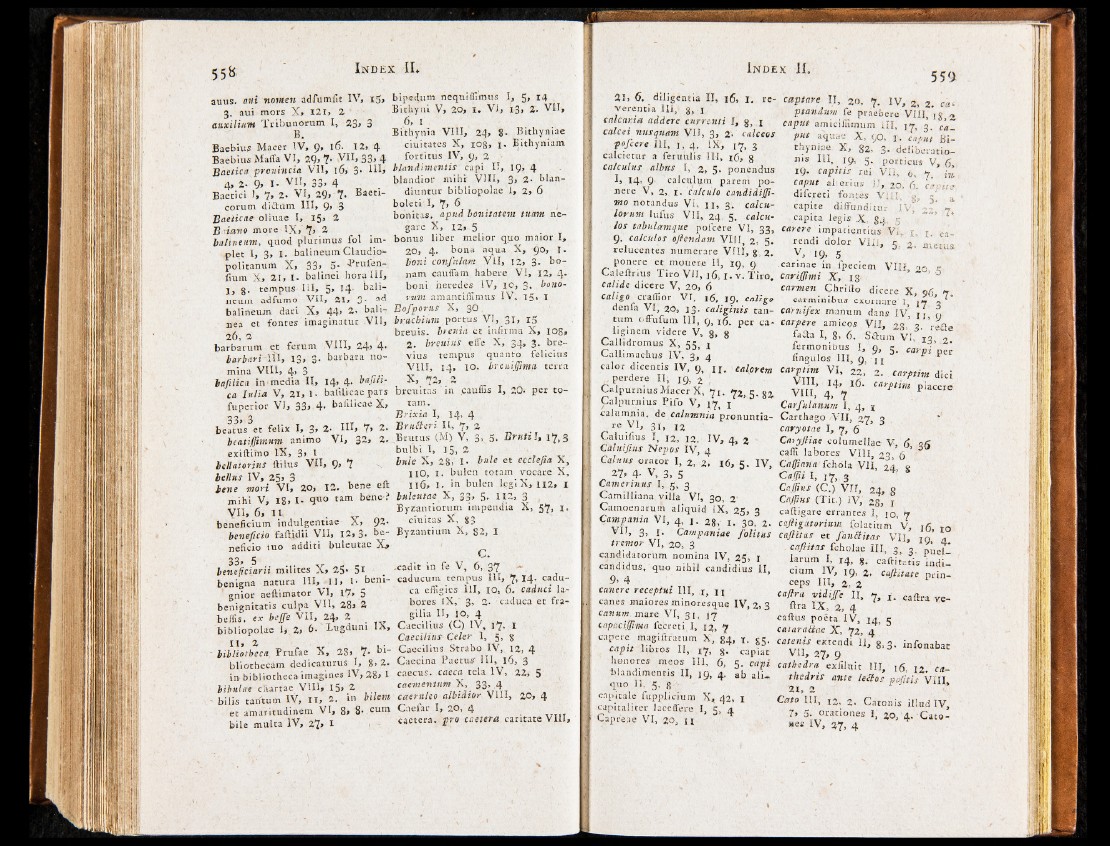 558
INDEX II.
auus. aui nomen adſumſit IV, 15,
3. aui mors X, 121, 2
auxilium Tribunorum I, 23, 3
B.
Baebius Macer IV, 9, 16. 12, 4
Baebius Maſſa VI, 29, 7. VII, 33, 4
Baetica prouincia VII, 16, 3. III,
4, 2. 9, 1. VII, 33, 4
Baetici I, 7, 2. VI, 29, 7. Baeti-
corum dictum III, 9, 3
Baeticae oliuae I, 15, 2
more IX, 7, 2
balineum, quod plurimus ſol im-
plet I, 3, 1. balineum Claudio-
politanum X, 33, 5. Pruſen-
ſium X, 21, 1. balinei hora III,
1, 8. tempus III, 5, 14. bali-
neum adſumo VII, 21, 3. ad
balineum daci X, 44, 2. bali-
nea et fontes imaginatur VII,
26, 2
barbarum et ferum VIII, 24, 4.
barbari III, 13, 3. barbara no-
mina VIII, 4, 3
baſilica in media II, 14, 4. baſili-
ca Iulia V, 21, 1. baſilicae pars
ſuperior VI, 33, 4. baſilicae X,
33, 3
beatus et felix I, 3, 2. III, 7, 2.
beatiſſimum animo VI, 32, 2.
exiſtimo IX, 3, 1
bellatorius ſtilus VII, 9, 7
bellus IV, 25, 3
bene mori VI, 20, 12. bene eſt
mihi V, 18, 1. quo tam bene?
VII, 6, 11
beneficium indulgentiae X, 92.
beneficio faſtidii VII, 12, 3. be-
neficio tuo additi buleutae X,
33, 5
beneficiarii milites X, 25. 51
benigna natura III, 11, 1. beni-
gnior aeſtimator VI, 17, 5
benignitatis culpa VII, 28, 2
beſſis. ex beſſe VII, 24, 2
bibliopolae I, 2, 6. Lugduni IX,
11, 2
bibliotheca Pruſae X, 28, 7. bi-
bliothecam dedicaturus I, 8, 2.
in bibliotheca imagines IV, 28, 1
bibulae chartae VIII, 15, 2
bilis tantum IV, 11, 2. in bilem
et amaritudinem VI, 8, 8. cum
bile multa IV, 27, 1
bipedum nequiſſimus I, 5, 14
Bithyni V, 20, 1. VI, 13, 2. VII,
6, 1
Bithynia VIII, 24, 8. Bithyniae
ciuitates X, 108, 1. Bithyniam
ſortitus IV, 9, 2
blandimentis capi II, 19, 4
blandior mihi VIII, 3, 2. blan-
diuntur bibliopolae I, 2, 6
boleti I, 7, 6
bonitas, apud bonitatem tuam ne-
gare X, 12, 5
bonus liber melior quo maior I,
20, 4. bona aqua X, 90, 1.
boni conſulam VII, 12, 3. bo-
nam cauſſam habere VI, 12, 4.
boni heredes IV, 10, 3. bono-
rum amantiſſimus IV. 15, 1
Boſporus X, 30
brachium portus VI, 31, 15
breuis. breuia et infirma X, 108,
2. breuius eſſe X, 34, 3. bre-
vius tempus quanto felicius
VIII, 14, 10. breuiſſima terra
X, 72, 2
breuitas in cauſſis I, 20. per to-
tam.
Brixia I, 14, 4
Bructeri II, 7, 2
Brutus (M) V, 3, 5. Bruti I, 17, 3
bulbi I, 15, 2
bule X, 28, 1. bule et eccleſia X,
110, 1. bulen totam vocare X,
116, 1. in bulen legi X, 112, 1
buleutae X, 33, 5. 112, 3
Byzantiorum impendia X, 57, 1.
ciuitas X, 83
Byzantium X, 82, 1
C.
cadit in ſe V, 6, 37
caducum tempus III, 7, 14. cadu-
ca effigies III, 10, 6. caduci la-
bores IX, 3, 2. caduca et fra-
gilia II, 10, 4
Caecilius (C) IV, 17, 1
Caecilius Celer I, 5, 8
Caecilius Strabo IV, 12, 4
Caecina Paetus III, 16, 3
caecus. caeca tela IV, 22, 5
caementum X, 33, 4
caeruleo albidior VIII, 20, 4
Caeſar I, 20, 4
caetera. pro caetera caritate VIII,
INDEX II.
559
21, 6. diligentia II, 16, 1. re-
verentia III, 8, 1
calcaria addere currenti I, 8, 1
calcei nusquam VII, 3, 2. calceos
poſcere III, 1, 4. IX, 17, 3
calcietur a ſeruulis III, 16, 8
calculus albus I, 2, 5. ponendus
I, 14, 9. calculum parem po-
nere V, 2, 1. calculo candidiſſi-
mo notandus VI, 11, 3. calcu-
lorum luſus VII, 24, 5. calcu-
los tabulamque poſcere VI, 33,
9. calculos oſtendam VIII, 2, 5.
relucentes numerare VIII, 8, 2.
ponere et mouere II, 19, 9
Caleſtrius Tiro VII, 16, 1. v. Tiro.
calide dicere V, 20, 6
caligo craſſior VI, 16, 19. caligo
denſa VI, 20, 13. caliginis tan-
tum offuſum III, 9, 16. per ca-
liginem videre V, 8, 8
Callidromus X, 55, 1
Callimachus IV, 3, 4
calor dicentis IV, 9, 11. calorem
perdere II, 19, 2
Calpurnius Macer X, 71. 72, 5. 82
Calpurnius Piſo V, 17, 1
calumnia. de calumnia pronuntia-
re VI, 31, 12
Caluiſius I, 12, 12. IV, 4, 2
Caluiſius Nepos IV, 4
Caluus orator I, 2, 2. 16, 5. IV,
27, 4. V, 3, 5
Camerinus I, 5, 3
Camilliana villa VI, 30, 2
Camoenarum aliquid IX, 25, 3
Campania VI, 4, 1. 28, 1. 30, 2.
VII, 3, 1. Campaniae ſolitus
tremor VI, 20, 3
candidatorum nomina IV, 25, 1
candidus, quo nihil candidius II,
9, 4
canere receptui III, 1, 11
canes maiores minoresque IV, 2, 3
canum mare VI, 31, 17
capaciſſima ſecreti I, 12, 7
capere magiſtratum X, 84, 1. 85.
capit libros II, 17, 8. capiat
honores meos III, 6, 5. capi
blandimentis II, 19, 4. ab ali-
quo II, 5, 8
capitale ſupplicium X, 42, 1
capitaliter laceſſere I, 5, 4
Capreae VI, 20, 11
captare II, 20, 7. IV, 2, 2. ca-
ptandum ſe praebere VIII, 18, 2
caput amiciſſimum III, 17, 3. ca-
put aquae X, 90, 1. caput Bi-
thyniae X, 82, 3. deliberatio-
nis III, 19, 5. porticus V, 6,
19. capitis rei VII, 6, 7. in
caput alterius II, 20, 6. capita
diſcreti fontes VIII, 8, 5. a
capite diffunditur IV, 22, 7.
capita legis X, 84, 5
carere impatientius VI, 1, 1. ca-
rendi dolor VIII, 5, 2. metus
V, 19, 5
carinae in ſpeciem VIII, 20, 5
cariſſimi X, 18
carmen Chriſto dicere X, 96, 7.
carminibus exornare I, 17, 3
carnifex manum dans IV, 11, 9
carpere amicos VII, 28, 3. recte
facta I, 8, 6. SCtum VI, 13, 2.
ſermonibus I, 9, 5. carpi per
ſingulos III, 9, 11
carptim VI, 22, 2. carptim dici
VIII, 14, 16. carptim placere
VIII, 4, 7
Carſulanum I, 4, 1
Carthago VII, 27, 3
caryotae I, 7, 6
Caryſtiae columellae V, 6, 36
caſſi labores VIII, 23, 6
Caſſiana ſchola VII, 24, 8
Caſſii I, 17, 3
Caſſius (C.) VII, 24, 8
Caſſius (Tit.) IV, 28, 1
caſtigare errantes I, 10, 7
caſtigatorium ſolatium V, 16, 10
caſtitas et ſanctitas VII, 19, 4.
caſtitas ſcholae III, 3, 3. puel-
larum I, 14, 8. caſtitatis indi-
cium IV, 19, 2. caſtitate prin-
ceps III, 2, 2
caſtra vidiſſe II, 7, 1. caſtra ve-
ſtra IX, 2, 4
caſtus poëta IV, 14, 5
cataractae X, 72, 4
catenis extendi II, 8, 3. inſonabat
VII, 27, 9
cathedra exſiluit III, 16, 12. ca-
thedris ante lectos poſitis VIII,
21, 2
Cato III, 12, 2. Catonis illud IV,
7, 5. orationes I, 20, 4. Cato-
nes IV, 27, 4